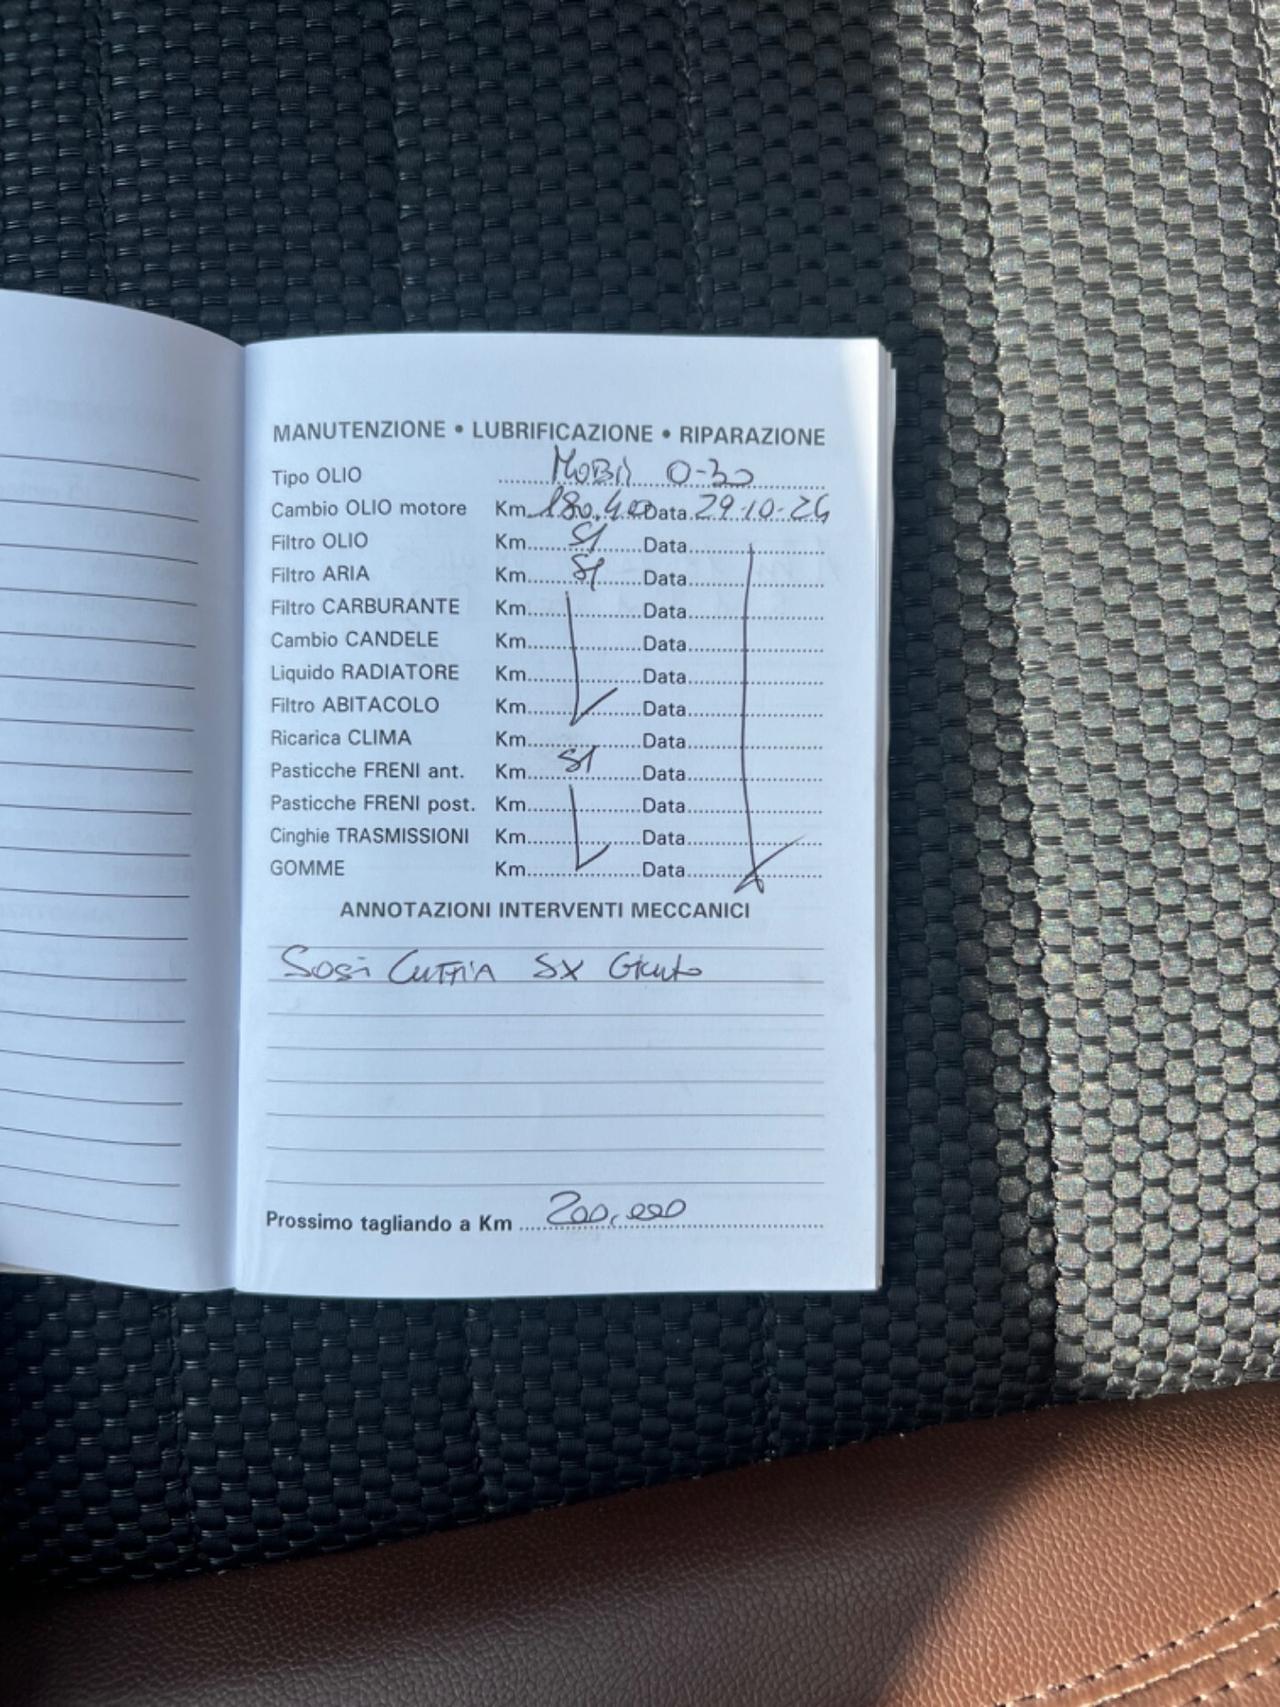 MANUTENZIONE • LUBRIFICAZIONE • RIPARAZIONE
Tipo OLIO MOBil 0-30
Cambio OLIO motore Km 180.400 Data 29.10.24
Filtro OLIO Km SI Data
Filtro ARIA Km SI Data
Filtro CARBURANTE Km Data
Cambio CANDELE Km Data
Liquido RADIATORE Km Data
Filtro ABITACOLO Km Data
Ricarica CLIMA Km Data
Pasticche FRENI ant. Km SI Data
Pasticche FRENI post. Km Data
Cinghie TRASMISSIONI Km Data
GOMME Km Data
ANNOTAZIONI INTERVENTI MECCANICI
CUFFIA SX
Prossimo tagliando a Km 200.000